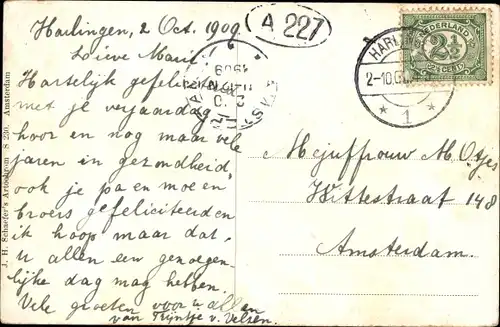 Harlingen, 2 Oct. 1909.
Lieve Marie!
Hartelijk gefeliciteerd
met je verjaardag
hoor en nog maar vele
jaren in gezondheid,
ook je pa en moe en
broers gefeliciteerden
ik hoop maar dat
u allen een genoegen-
lijke dag mag hebben.
Vele groeten voor u allen
van Trijntje v. Velzen.
A 227
NEDERLAND
2½
2½ CENT
HARLINGEN
2-10.
* 1 *
Mejuffrouw M. Otjes
Wittestraat 148
Amsterdam.
J. H. Schaefer's Artodroom S 230. Amsterdam